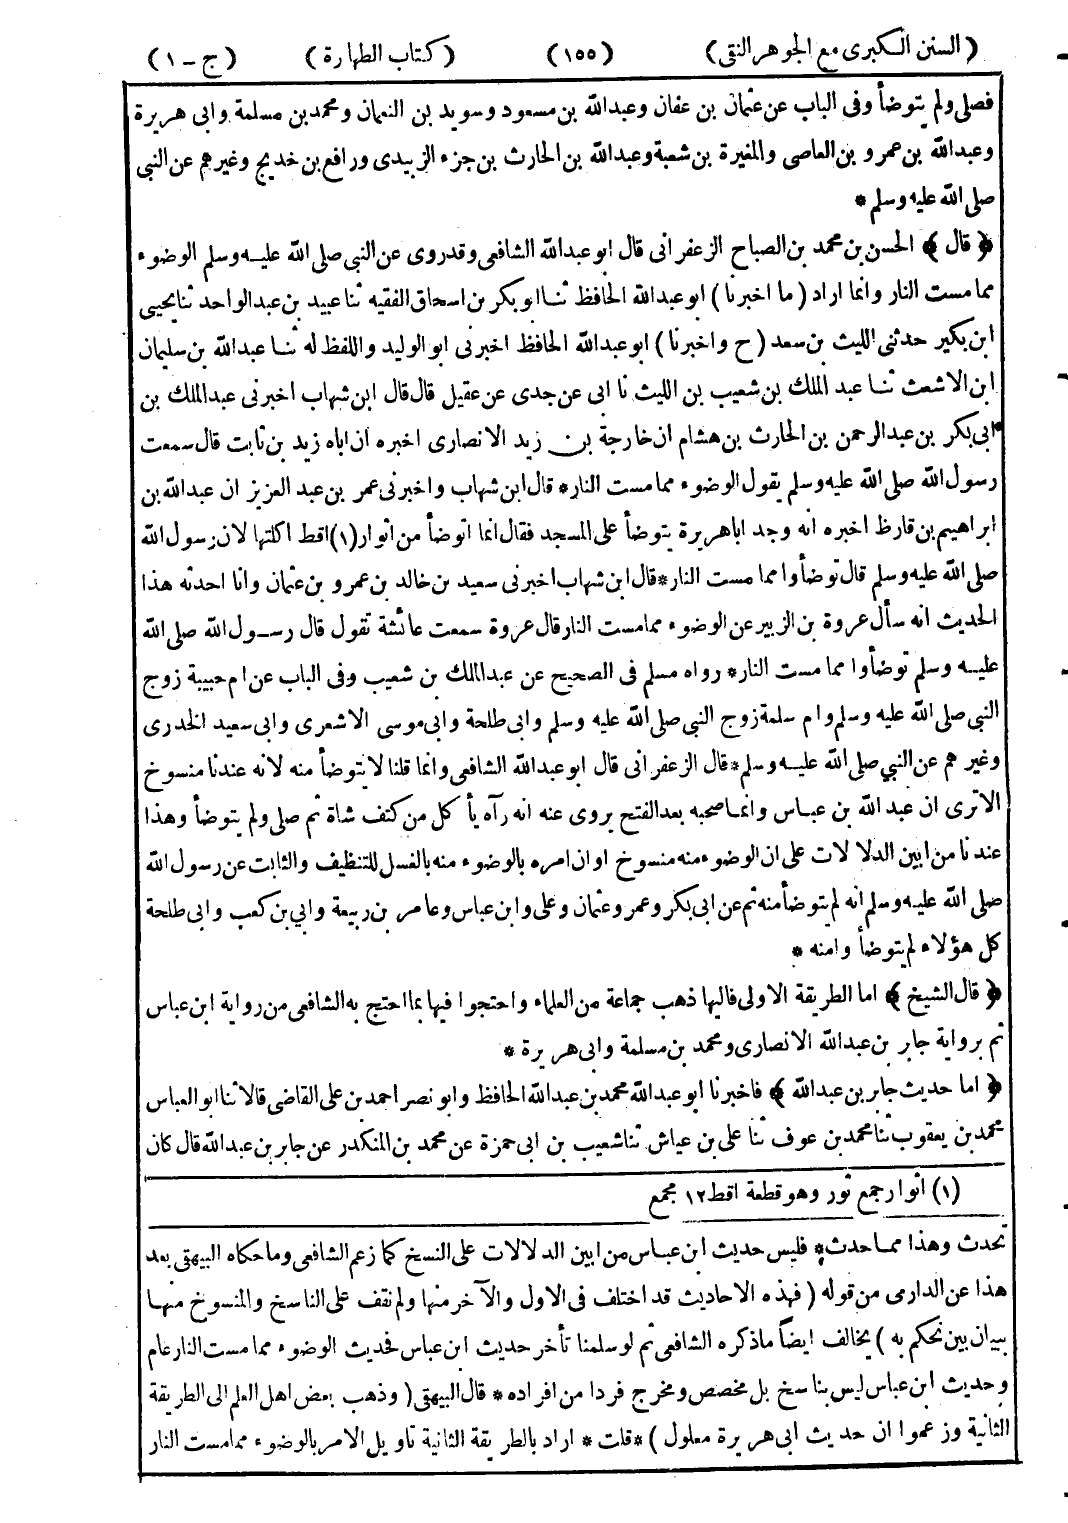 (السنن الكبرى مع الجوهر النقى) (١٥٥) (كتاب الطهارة) (ج - ١)
فصلى ولم يتوضأ وفى الباب عن عثمان بن عفان وعبدالله بن مسعود وسويد بن النعمان ومحمد بن مسلمة وابى هريرة
وعبدالله بن عمرو بن العاصى والمغيرة بن شعبة وعبدالله بن الحارث بن جزء الزبيدى ورافع بن خديج وغيرهم عن النبى
صلى الله عليه وسلم *
﴿ قال ﴾ الحسن بن محمد بن الصباح الزعفرانى قال ابو عبدالله الشافعى وقدروى عن النبى صلى الله عليه وسلم الوضوء
مما مست النار وانما اراد (ما اخبرنا) ابو عبدالله الحافظ ثنا ابو بكر بن اسحاق الفقيه ثنا عبيد بن عبدالواحد ثنا يحيى
ابن بكير حدثنى الليث بن سعد (ح واخبرنا) ابو عبدالله الحافظ اخبرنى ابو الوليد واللفظ له ثنا عبدالله بن سليمان
ابن الاشعث ثنا عبد الملك بن شعيب بن الليث نا ابى عن جدى عن عقيل قال قال ابن شهاب اخبرنى عبدالملك بن
ابى بكر بن عبدالرحمن بن الحارث بن هشام ان خارجة بن زيد الانصارى اخبره ان اباه زيد بن ثابت قال سمعت
رسول الله صلى الله عليه وسلم يقول الوضوء مما مست النار* قال ابن شهاب واخبرنى عمر بن عبد العزيز ان عبدالله بن
ابراهيم بن قارظ اخبره انه وجد اباهريرة يتوضأ على المسجد فقال انما اتوضأ من اثوار(١) اقط اكلتها لان رسول الله
صلى الله عليه وسلم قال توضأوا مما مست النار* قال ابن شهاب اخبرنى سعيد بن خالد بن عمرو بن عثمان وانا احدثه هذا
الحديث انه سأل عروة بن الزبير عن الوضوء مما مست النار قال عروة سمعت عائشة تقول قال رسول الله صلى الله
عليه وسلم توضأوا مما مست النار* رواه مسلم فى الصحيح عن عبدالملك بن شعيب وفى الباب عن ام حبيبة زوج
النبى صلى الله عليه وسلم وام سلمة زوج النبى صلى الله عليه وسلم وابى طلحة وابى موسى الاشعرى وابى سعيد الخدرى
وغيرهم عن النبي صلى الله عليه وسلم* قال الزعفرانى قال ابو عبدالله الشافعى وانما قلنا لا نتوضأ منه لانه عندنا منسوخ
الاترى ان عبدالله بن عباس وانما صحبه بعد الفتح يروى عنه انه رآه يأكل من كتف شاة ثم صلى ولم يتوضأ وهذا
عندنا من ابين الدلالات على ان الوضوء منه منسوخ او ان امره بالوضوء منه بالغسل للتنظيف والثابت عن رسول الله
صلى الله عليه وسلم انه لم يتوضأ منه ثم عن ابى بكر وعمر وعثمان وعلى وابن عباس وعامر بن ربيعة وابي بن كعب وابى طلحة
كل هؤلاء لم يتوضأوا منه *
﴿ قال الشيخ ﴾ اما الطريقة الاولى فاليها ذهب جماعة من العلماء واحتجوا فيها بما احتج به الشافعى من رواية ابن عباس
ثم برواية جابر بن عبدالله الانصارى ومحمد بن مسلمة وابى هريرة *
﴿ اما حديث جابر بن عبدالله ﴾ فاخبرنا ابو عبدالله محمد بن عبدالله الحافظ وابو نصر احمد بن على القاضى قالا ثنا ابو العباس
محمد بن يعقوب ثنا محمد بن عوف ثنا على بن عياش ثنا شعيب بن ابى حمزة عن محمد بن المنكدر عن جابر بن عبدالله قال كان
(١) اثوار جمع ثور وهو قطعة اقط ١٢ مجمع
تحدث وهذا مما حدث* فليس حديث ابن عباس من ابين الدلالات على النسخ كما زعم الشافعى وما حكاه البيهقى بعد
هذا عن الدارمى من قوله (فهذه الاحاديث قد اختلف فى الاول والآخر منها ولم نقف على الناسخ والمنسوخ منها
ببيان بين نحكم به) يخالف ايضاً ما ذكره الشافعى ثم لو سلمنا تأخر حديث ابن عباس فحديث الوضوء مما مست النار عام
وحديث ابن عباس ليس بناسخ بل مخصص ومخرج فردا من افراده* قال البيهقى (وذهب بعض اهل العلم الى الطريقة
الثانية وزعموا ان حديث ابى هريرة معلول)* قلت* اراد بالطريقة الثانية تاويل الامر بالوضوء مما مست النار